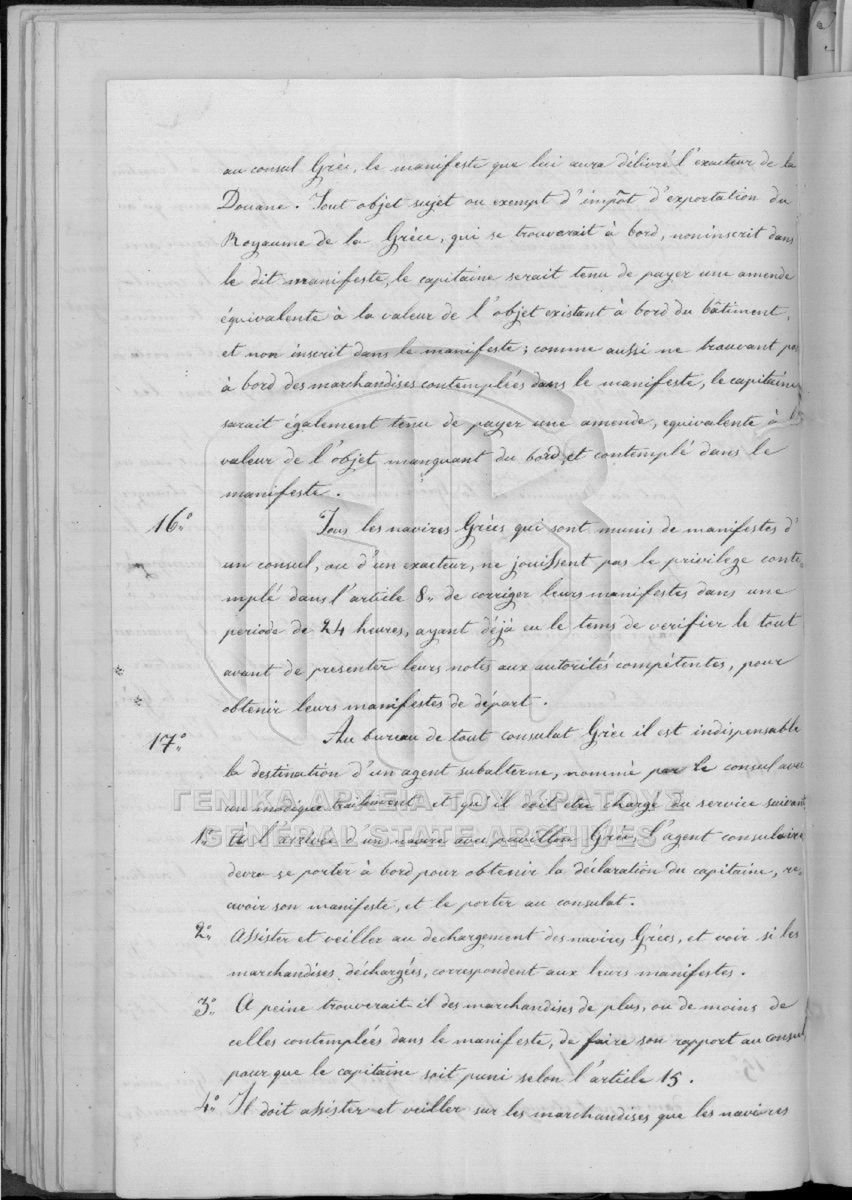 au consul Grèc, le manifeste que lui aura délivré l'exacteur de la
Douane. Tout objet sujet ou exempt d'impôt d'exportation du
Royaume de la Grèce, qui se trouverait à bord, non inscrit dans
le dit manifeste, le capitaine serait tenu de payer une amende
équivalente à la valeur de l'objet existant à bord du bâtiment,
et non inscrit dans le manifeste; comme aussi ne trouvant pas
à bord des marchandises contemplées dans le manifeste, le capitaine
sarait également tenu de payer une amende, equivalente à
valeur de l'objet manquant du bord, et contemplé dans le
manifeste.
16.° Tous les navires Grècs qui sont munis de manifestes d'
un consul, ou d'un exacteur, ne jouissent pas le privilege conte-
mplé dans l'article 8„ de corriger leurs manifestes dans une
periode de 24 heures, ayant déjà eu le tems de verifier le tout
avant de presenter leurs notes aux autorités compétentes, pour
obtenir leurs manifestes de départ.
17.° Au bureau de tout consulat Grèc il est indispensable
la destination d'un agent subalterne, nommé par le consul avec
un modique traitement et qu'il doit etre chargé du service suivant
ΓΕΝΙΚΑ ΑΡΧΕΙΑ ΤΟΥ ΚΡΑΤΟΥΣ
GENERAL STATE ARCHIVES
1.° À l'arrivée d'un navire avec pavillon Grèc, l'agent consulaire
devra se porter à bord pour obtenir la déclaration du capitaine, re-
cevoir son manifeste, et le porter au consulat.
2.° Assister et veiller au dechargement des navires Grècs, et voir si les
marchandises déchargées, correspondent aux leurs manifestes.
3.° A peine trouverait-il des marchandises de plus, ou de moins de
celles contemplées dans le manifeste, de faire son rapport au consul
pour que le capitaine soit puni selon l'article 15.
4.° Il doit assister et veiller sur les marchandises que les navires